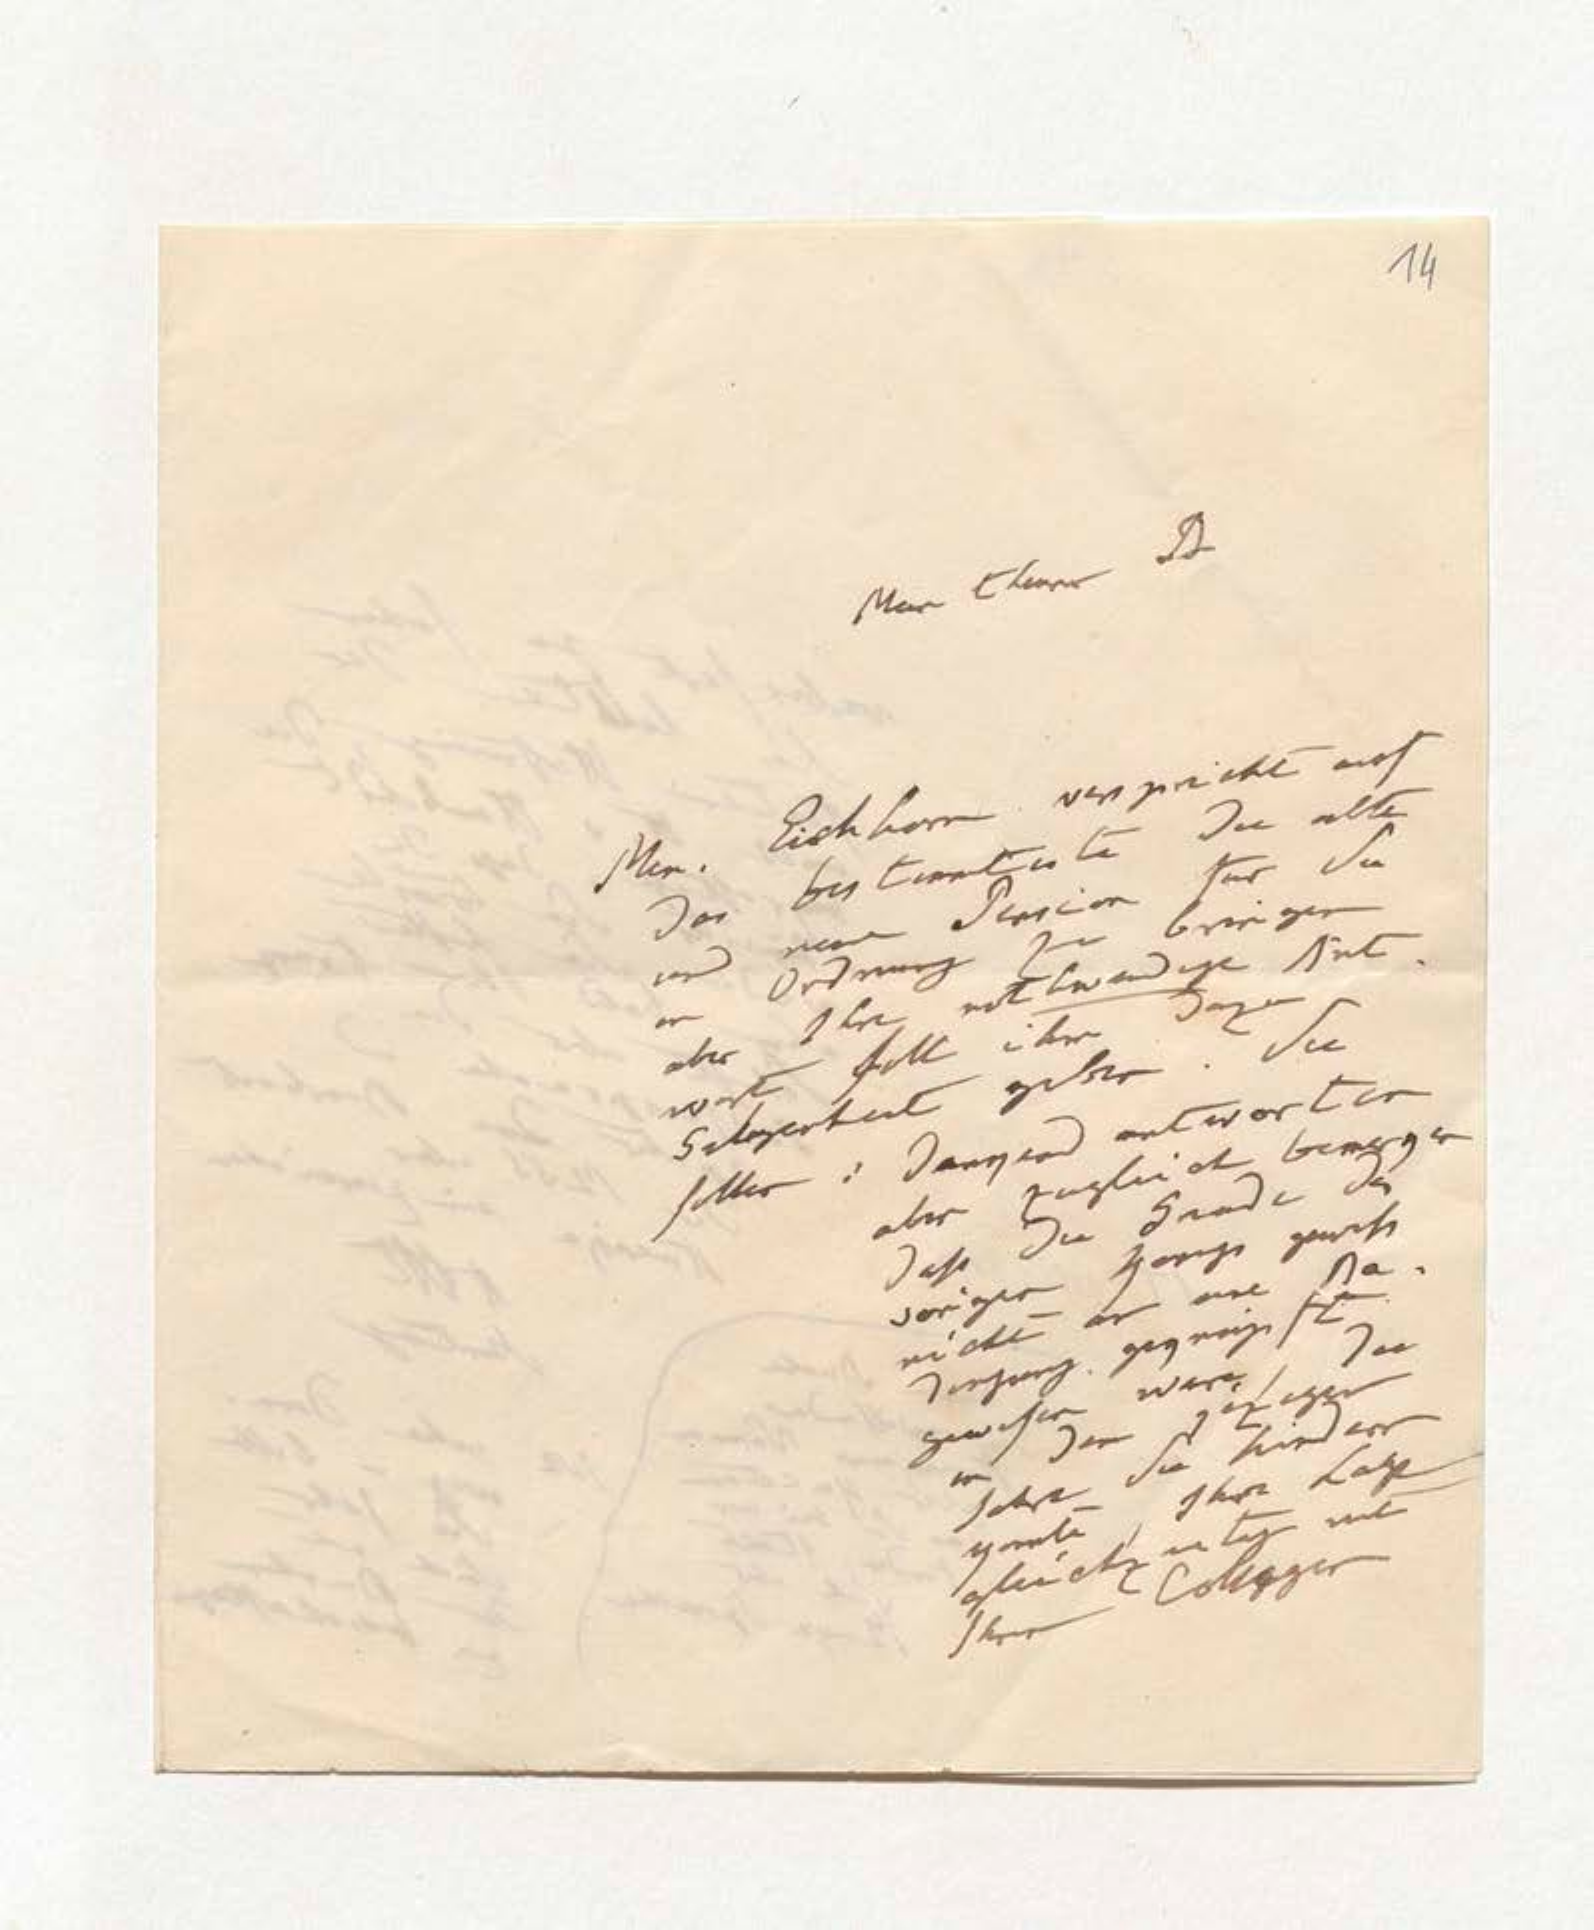 14
Mein theurer D
Min. Eichhorn verspricht auf
das bestimmteste die alte
und neue Pension für Sie
in Ordnung zu bringen
aber Ihre nothwendige Ant-
wort soll ihm dazu
Gelegenheit geben. Sie
sollen: dankend antworten
aber zugleich bemerken
daß die Gnade des
vorigen Königs gewiß
nicht an eine Be-
dingung geknüpft
gewesen wäre, die
in dem jezigen
Jahre Sie hindern
konnte, Ihre Lage
gleichzeitig mit
Ihren Collegen